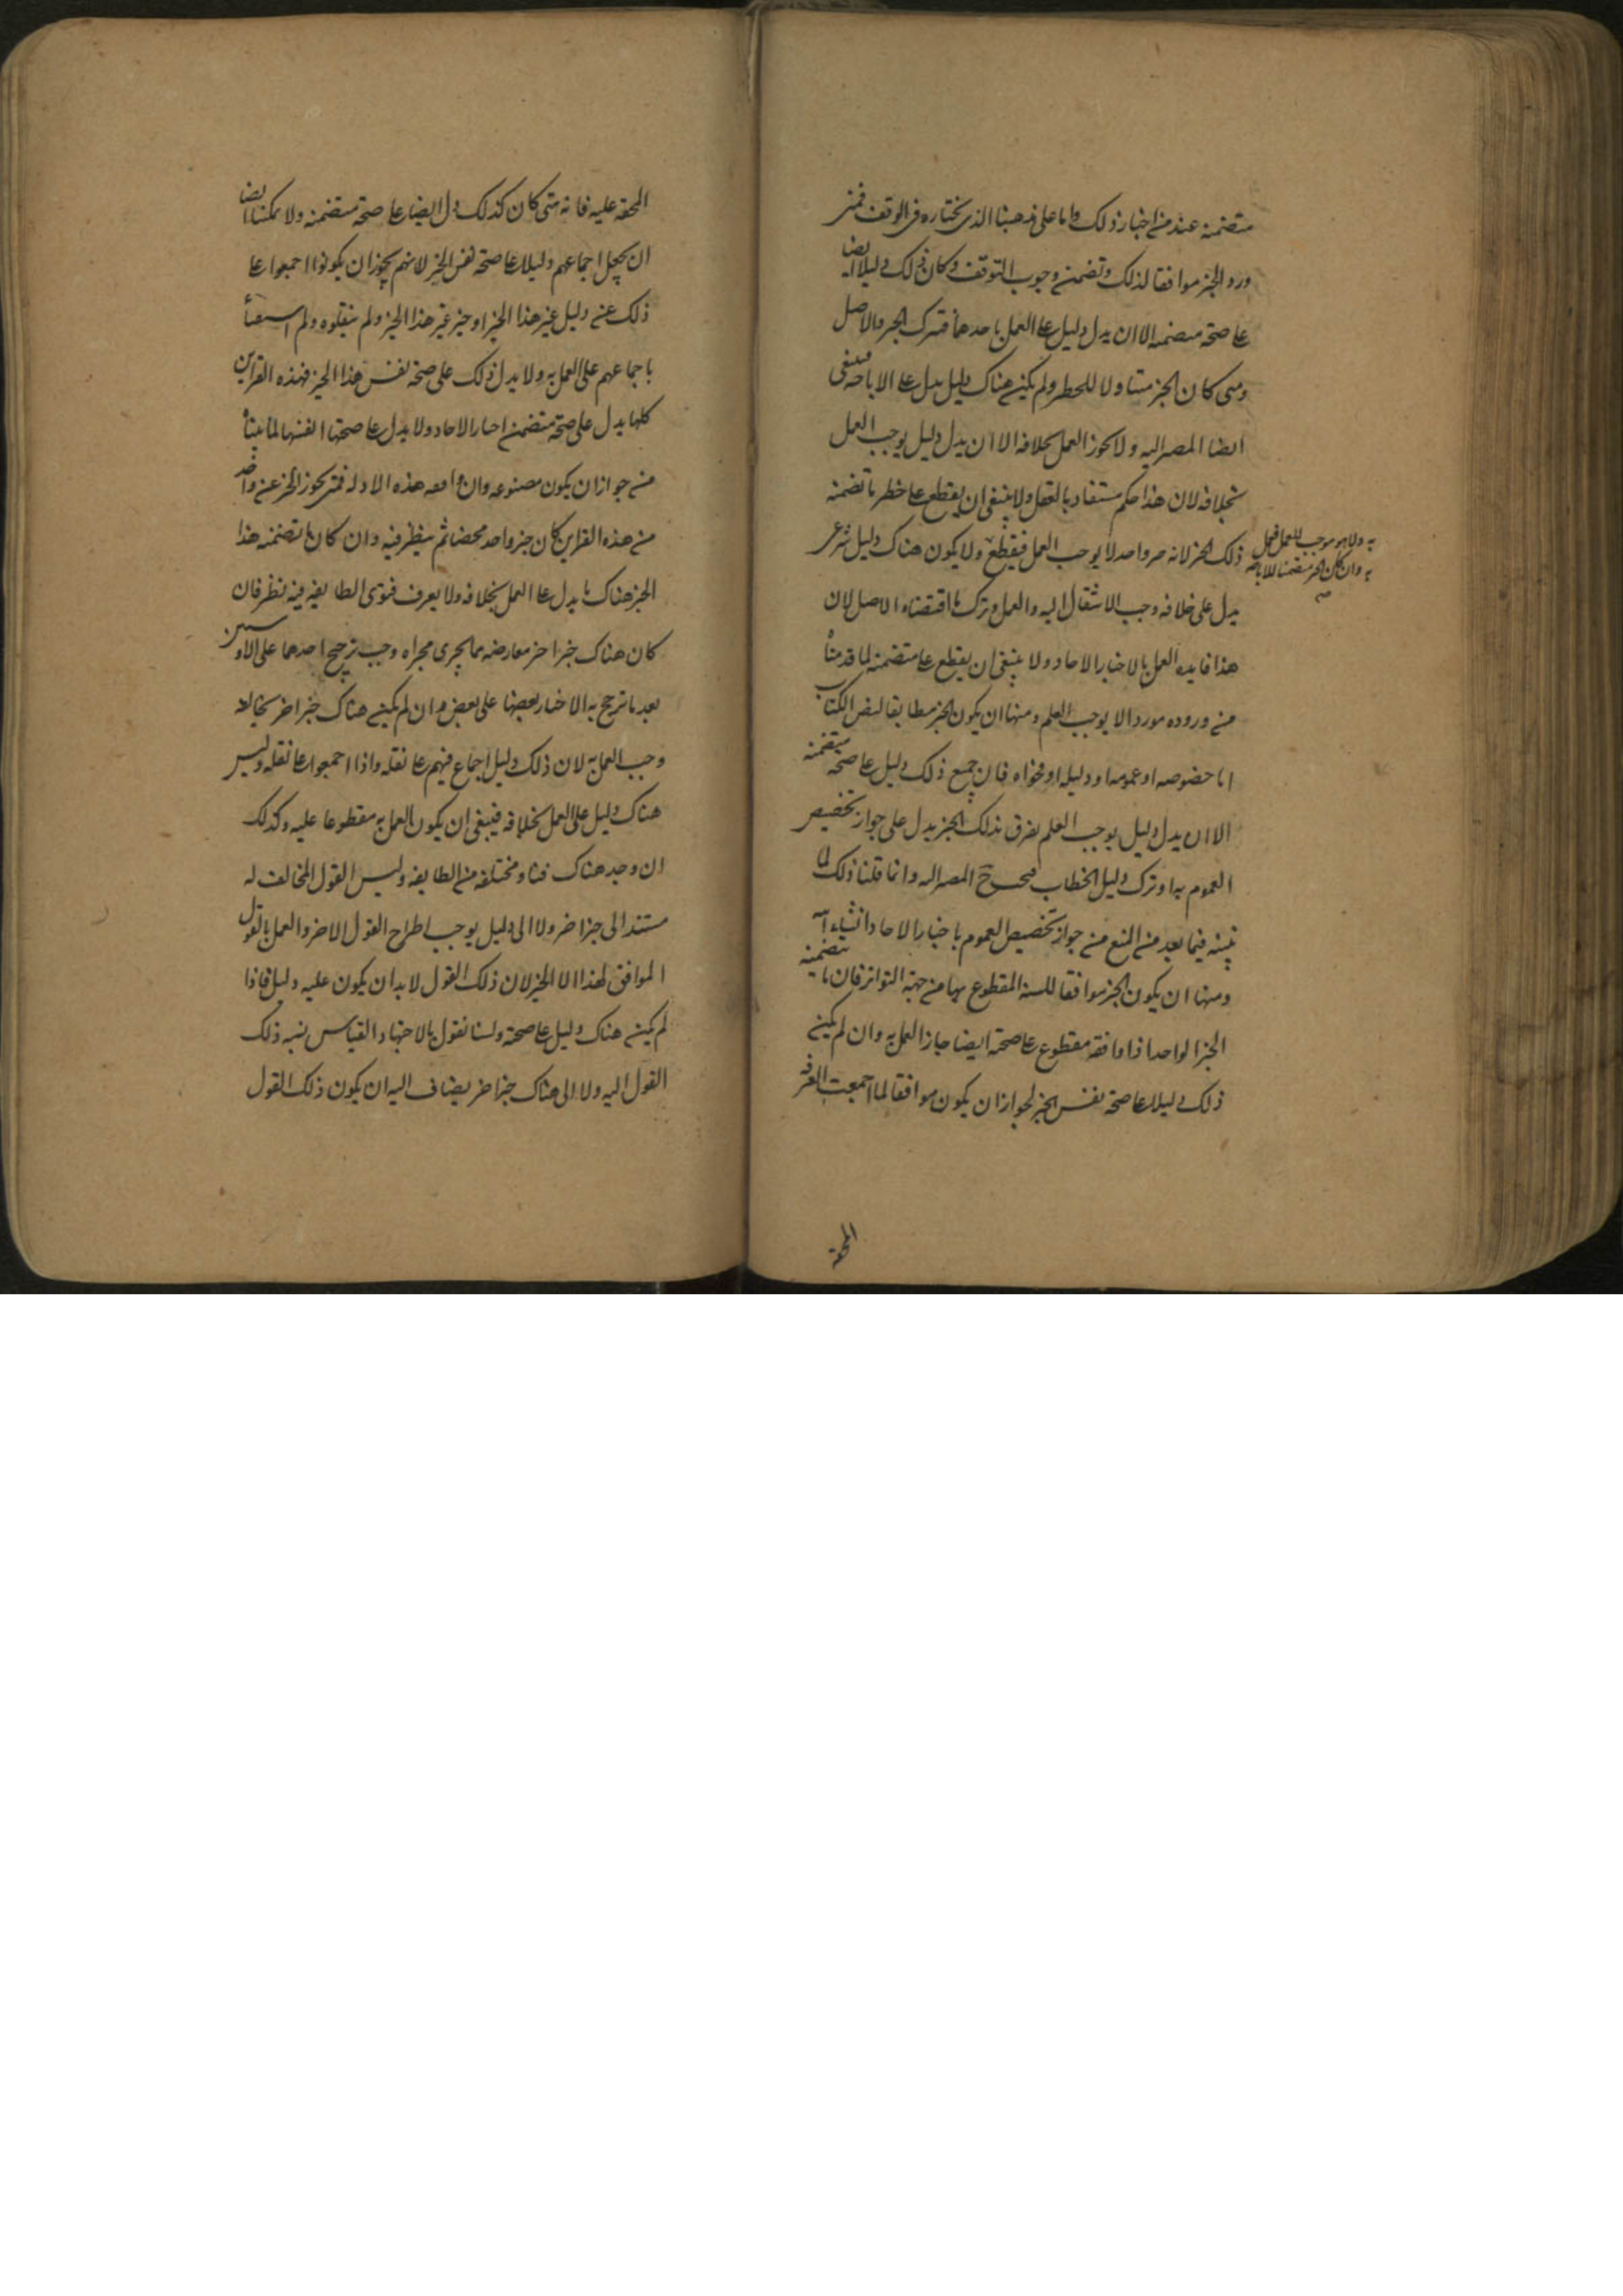 متضمنه عند من اختار ذلك واما على مذهبنا الذى نختاره فى الوقف فمتى
ورد الخبر موافقا لذلك وتضمن وجوب التوقف وكان ذلك دليلا ايضا
على صحة متضمنه الا ان يدل دليل على العمل باحدهما فترك الخبر والاصل
ومتى كان الخبر متناولا للحظر ولم يكن هناك دليل يدل على الاباحه فينبغى
ايضا المصير اليه ولا يجوز العمل بخلافه الا ان يدل دليل يوجب العمل
بخلافه لان هذا حكم مستفاد بالعقل ولا ينبغى ان يقطع على حظر ما تضمنه
ذلك الخبر لانه خبر واحد لا يوجب العمل فيقطع ولا يكون هناك دليل شرعى
به ولا هو موجب للعمل فيعمل
به وان كان الخبر متضمنا للاباحه
يدل على خلافه وجب الانتقال اليه والعمل وترك ما اقتضاه الاصل لان
هذا فايده العمل بالاخبار الاحاد ولا ينبغى ان يقطع على متضمنه لما قدمناه
من وروده موردا لا يوجب العلم ومنها ان يكون الخبر مطابقا لنص الكتاب
اما خصوصه او عمومه او دليله او فحواه فان جميع ذلك دليل على صحة متضمنه
الا ان يدل دليل يوجب العلم يقرن بذلك الخبر يدل على جواز تخصيص
العموم به او ترك دليل الخطاب فيجب ح المصير اليه وانما قلنا ذلك لما
نبينه فيما بعد من المنع من جواز تخصيص العموم باخبار الاحاد انشاء الله
ومنها ان يكون الخبر موافقا للسنه المقطوع بها من جهة التواتر فان ما تتضمنه
الخبر الواحد اذا وافقه مقطوع على صحته ايضا جاز العمل به وان لم يكن
ذلك دليلا على صحة نفس الخبر لجواز ان يكون موافقا لما اجمعت الفرقه
المحقه
المحقه عليه فانه متى كان كذلك دل ايضا على صحة متضمنه ولا يمكننا ايضا
ان نجعل اجماعهم دليلا على صحة نفس الخبر لانهم يجوز ان يكونوا اجمعوا على
ذلك عن دليل غير هذا الخبر او خبر غير هذا الخبر ولم ينقلوه ولم استغنأ
باجماعهم على العمل به ولا يدل ذلك على صحة نفس هذا الخبر فهذه القراين
كلها يدل على صحة متضمن اخبار الاحاد ولا يدل على صحتها انفسها لما بيناه
من جواز ان يكون مصنوعه وان وافقه هذه الادله فمتى تجرد الخبر عن واحد
من هذه القراين كان خبر واحد محضا ثم ينظر فيه وان كان ما تضمنه هذا
الخبر هناك ما يدل على العمل بخلافه ولا يعرف فتوى الطايفه فيه نظر فان
كان هناك خبرا اخر معارضه مما يجرى مجراه وجب ترجيح احدهما على الاخر وسنبين
بعد ما ترجح به الاخبار بعضها على بعض وان لم يكن هناك خبر اخر يخالفه
وجب العمل به لان ذلك دليل اجماع فيهم على نقله واذا اجمعوا على نقله وليس
هناك دليل على العمل بخلافه فينبغى ان يكون العمل به مقطوعا عليه وكذلك
ان وجد هناك فتاو مختلفه من الطايفه وليس القول المخالف له
مستند الى خبر اخر ولا الى دليل يوجب اطراح القول الاخر والعمل بالقول
الموافق لهذا الا الخبر لان ذلك القول لا بد ان يكون عليه دليل فاذا
لم يكن هناك دليل على صحة ولسنا نقول بالاجتهاد والقياس نسبه ذلك
القول اليه ولا الى هناك خبر اخر يضاف اليه ان يكون ذلك القول